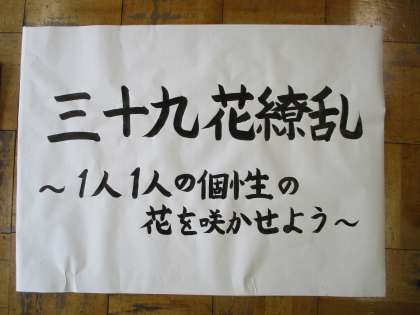 三十九花繚乱
～1人1人の個性の
花を咲かせよう～